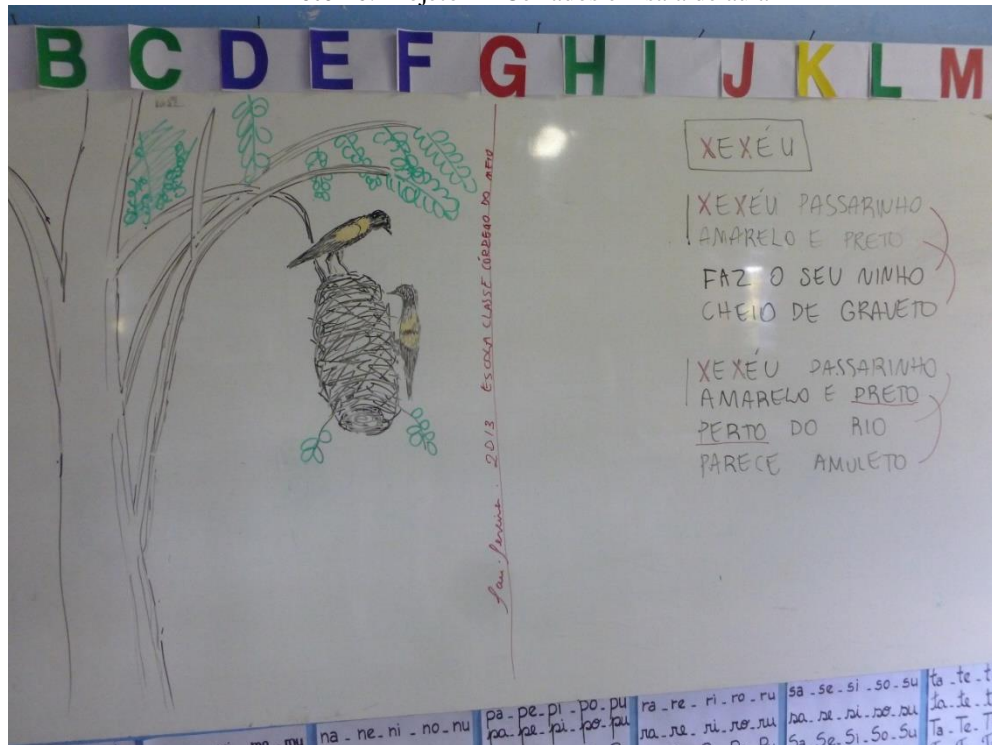 B C D E F G H I J K L M
2013 ESCOLA CLASSE CÓRREGO DO MEIO
XEXÉU
XEXÉU PASSARINHO
AMARELO E PRETO
FAZ O SEU NINHO
CHEIO DE GRAVETO
XEXÉU PASSARINHO
AMARELO E PRETO
PERTO DO RIO
PARECE AMULETO
na - ne - ni - no - nu
pa - pe - pi - po - pu
pa - pe - pi - po - pu
ra - re - ri - ro - ru
ra - re - ri - ro - ru
sa - se - si - so - su
sa - se - si - so - su
Sa - Se - Si - So - Su
ta - te - t
ta - te - t
Ta - Te - T